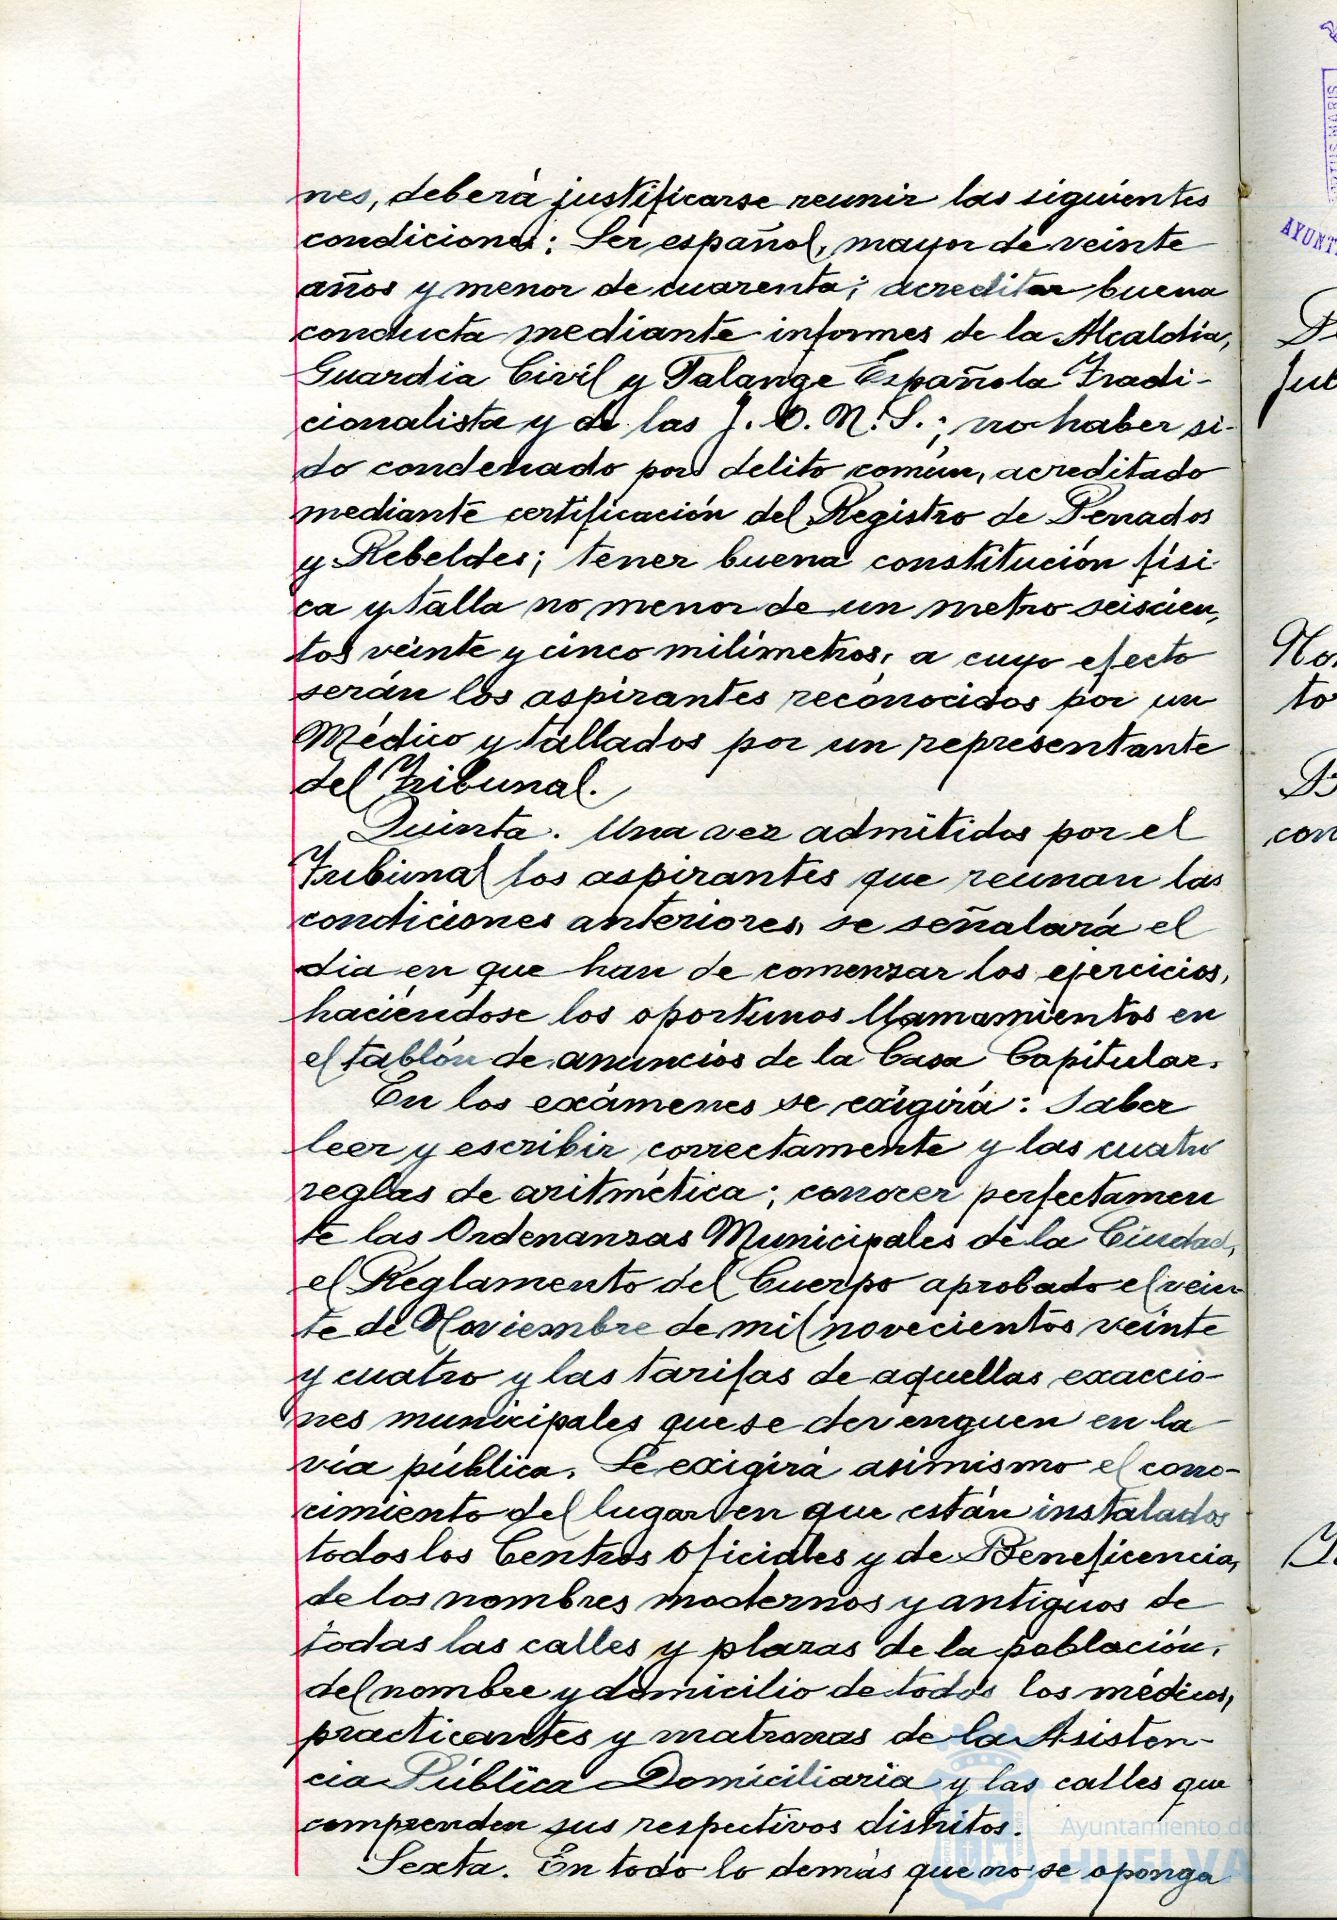 nes, deberá justificarse reunir las siguientes
condiciones: Ser español, mayor de veinte
años y menor de cuarenta; acreditar buena
conducta mediante informes de la Alcaldía,
Guardia Civil y Falange Española Tradi-
cionalista y de las J. O. N. S.; no haber si-
do condenado por delito común, acreditado
mediante certificación del Registro de Penados
y Rebeldes; tener buena constitución físi-
ca y talla no menor de un metro seiscien-
tos veinte y cinco milímetros, a cuyo efecto
serán los aspirantes reconocidos por un
Médico y tallados por un representante
del Tribunal.
Quinta. Una vez admitidos por el
Tribunal los aspirantes que reunan las
condiciones anteriores, se señalará el
dia en que han de comenzar los ejercicios,
haciéndose los oportunos llamamientos en
el tablón de anuncios de la Casa Capitular.
En los exámenes se exigirá: Saber
leer y escribir correctamente y las cuatro
reglas de aritmética; conocer perfectamen
te las Ordenanzas Municipales de la Ciudad,
el Reglamento del Cuerpo aprobado el vein-
te de Noviembre de mil novecientos veinte
y cuatro y las tarifas de aquellas exaccio-
nes municipales que se devenguen en la
vía pública. Se exigirá asimismo el cono-
cimiento del lugar en que están instalados
todos los Centros oficiales y de Beneficencia,
de los nombres modernos y antiguos de
todas las calles y plazas de la población,
del nombre y domicilio de todos los médicos,
practicantes y matronas de la Asisten-
cia Pública Domiciliaria y las calles que
comprenden sus respectivos distritos.
Sexta. En todo lo demás que no se oponga
Ayuntamiento de
HUELVA